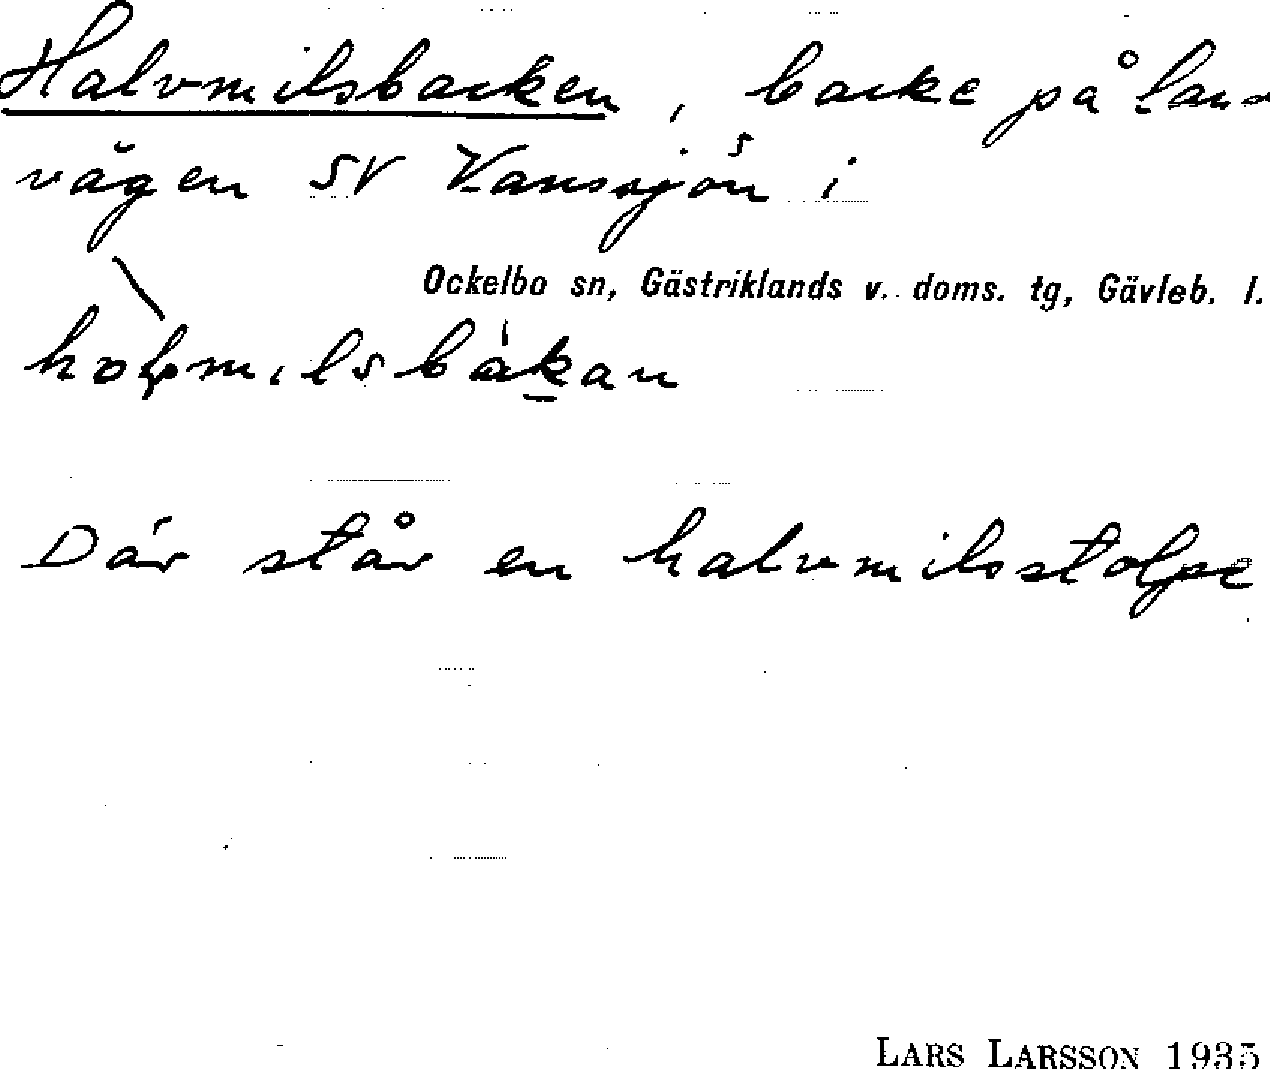 Halvmilsbacken, backe på lan
vägen SV Vanssjön i
Ockelbo sn, Gästriklands v. doms. tg, Gävleb. l.
Där står en halvmilsstolpe
LARS LARSSON 1935